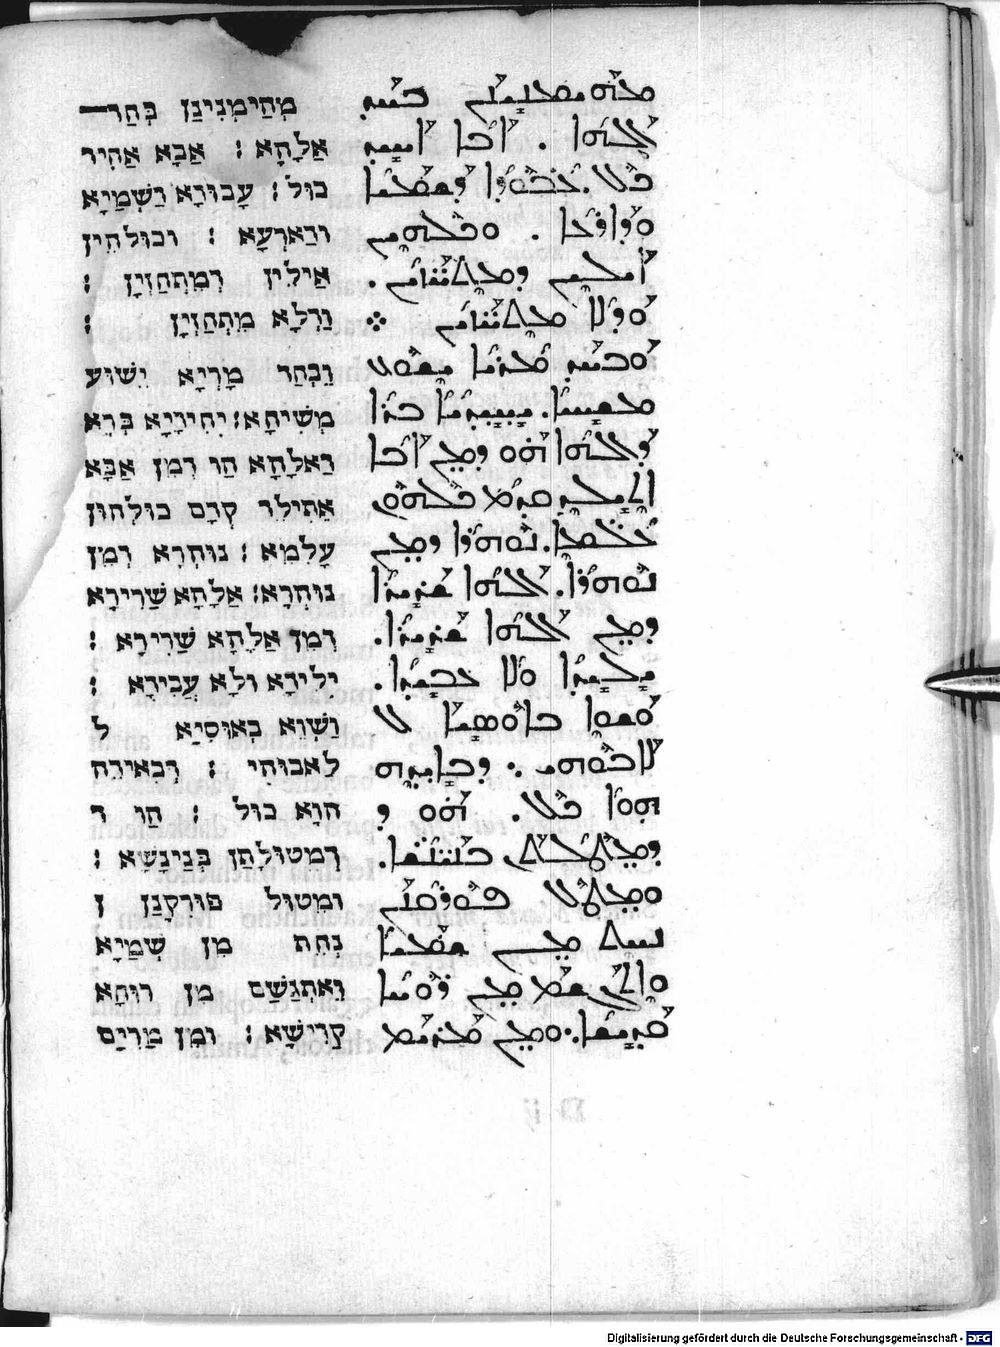 ܡܗܝܡܢܝܢܢ ܒܚܕ
ܐܠܗܐ . ܐܒܐ ܐܚܝܕ
ܟܠ . ܥܒܘܕܐ ܕܫܡܝܐ
ܘܕܐܪܥܐ . ܘܟܠܗܝܢ
ܐܝܠܝܢ ܕܡܬܚܙܝܢ .
ܘܕܠܐ ܡܬܚܙܝܢ ܀
ܘܒܚܕ ܡܪܝܐ ܝܫܘܥ
ܡܫܝܚܐ. ܝܚܝܕܝܐ ܒܪܐ
ܕܐܠܗܐ ܗܘ ܕܡܢ ܐܒܐ
ܐܬܝܠܕ ܩܕܡ ܟܠܗܘܢ
ܥܠܡܐ. ܢܘܗܪܐ ܕܡܢ
ܢܘܗܪܐ. ܐܠܗܐ ܫܪܝܪܐ
ܕܡܢ ܐܠܗܐ ܫܪܝܪܐ.
ܝܠܝܕܐ ܘܠܐ ܥܒܝܕܐ.
ܘܫܘܐ ܒܐܘܣܝܐ ܠ
ܠܐܒܘܗܝ . ܕܒܐܝܕܗ
ܗܘܐ ܟܠ. ܗܘ ܕ
ܕܡܛܠܬܢ ܒܢܝܢܫܐ.
ܘܡܛܠ ܦܘܪܩܢܢ
ܢܚܬ ܡܢ ܫܡܝܐ
ܘܐܬܓܫܡ ܡܢ ܪܘܚܐ
ܩܕܝܫܐ. ܘܡܢ ܡܪܝܡ
מְהַיםְנִינַן בְּחַד
אַלָהָא : אַבָא אַחִיד
כוּל : עָבוּדָא דַשְׁמַיָא
וּדַארְעָא : וכוּלהֵין
אַילֵין דְמִתְחַזְיָן :
וַדְלָא מִתְחַזְיָן :
וַבְחַד מָרְיָא יִשׁוּע
מְשִׁיחָא : יִחִידָיָא בְּרָא
דַאלָהָא הַו דְמִן אַבָּא
אֵתִילִד קְדָם כוּלְהוּן
עָלמֵא : נוּהְרָא דְמִן
נוּהְרָא : אַלָהָא שַׁרִירָא
דְמִן אַלָהָא שַׁרִירָא :
יִלִידָא ולָא עֲבִידָא :
וַשְׁוֵא בְאוּסִיַא ל
לַאבוּהִי : דְבִאידֵה
הוָא כוּל : הַו ד
דְמִטוּלָתַן בְּנַינָשָׁא :
ומִטוּל פוּרקָנַן ן
נְחֵת מִן שְׁמַיָא
וֵאתְגַשַׁם מִן רוּחָא
קַדִישָׁא : ומִן מַריַם